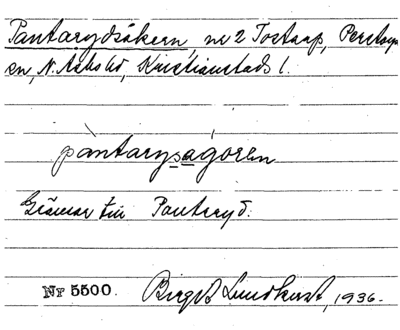 Pantarydsåkern, nr 2 Tostarp, Perstorp
sn, N. Åsbo hd, Kristianstads l.
pàntaryságoren
Gränsar till Pantaryd.
Nr 5500. Birgit Lundkvist, 1936.